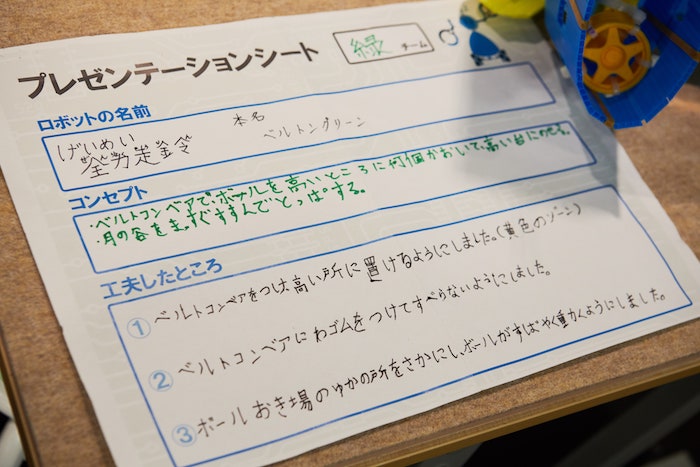 プレゼンテーションシート
緑 チーム
ロボットの名前
げいめい 本名
ベルトングリーン
コンセプト
・ベルトコンベアで、ボールを高いところに何個かおいて、高い台にのせる。
・月の谷をまっすぐすすんでとっぱする。
工夫したところ
① ベルトコンベアをつけ、高い所に置けるようにしました。(黄色のゾーン)
② ベルトコンベアにわゴムをつけてすべらないようにしました。
③ ボールおき場のゆかの所をさかにし、ボールがすばやく動くようにしました。